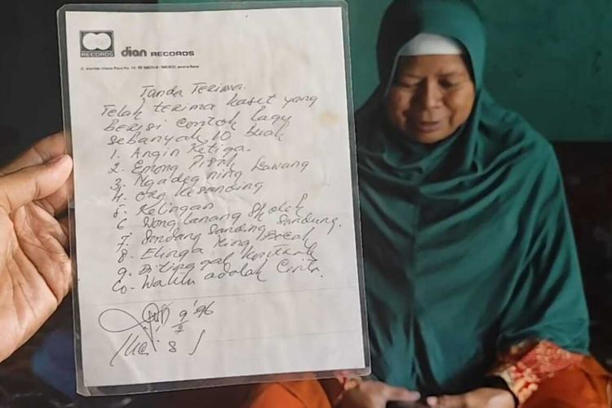 RECORDS
dian RECORDS
Tanda Terima.
Telah terima kaset yang
berisi contoh lagu
sebanyak 10 buah
1. Angin Ketiga.
2. Entong Pisah
3. Ngadeg ning Lawang
4. Ora Kesanding
5. Kelingan
6. Wong Lanang Sholeh
7. Sandang Sanding Sandung.
8. Elinga Ning Bocah
9. Ditinggal
10. Waktu adalah Cerita
9 '96
8